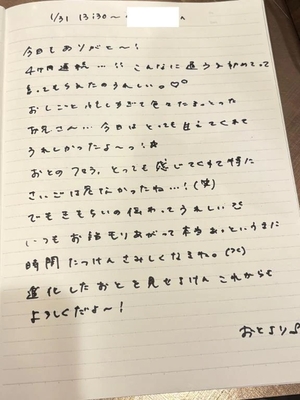 1/31 13:30〜
今日もありがと〜！
4ヶ月連続…!! こんなに逢うの初めてって
言ってもらえたのうれしい。♡♡
おしごと忙しすぎて色々たまってた
お兄さん…今日はとっても甘えてくれて
うれしかったよ〜っ！☆
おとの とっても感じてくれて特に
さいごは危なかったね…！(笑)
でもきもちいの伝わってうれしい
いつもお話もりあがって本当あっというまに
時間たつけんさみしくなるね。
進化したおとを見せるけんこれからも
よろしくだよ〜！
おとより♪